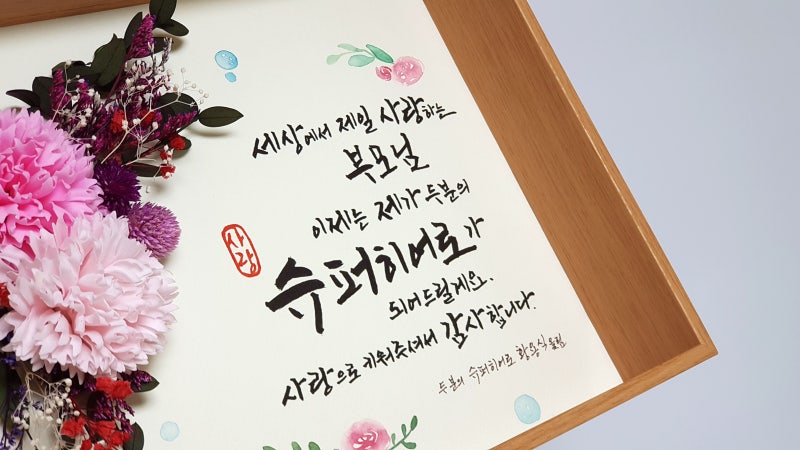 세상에서 제일 사랑하는
부모님
이제는 제가 두분의
슈퍼히어로가
되어드릴게요.
사랑으로 키워주셔서 감사합니다.
두분의 슈퍼히어로 황용식 올림
사랑